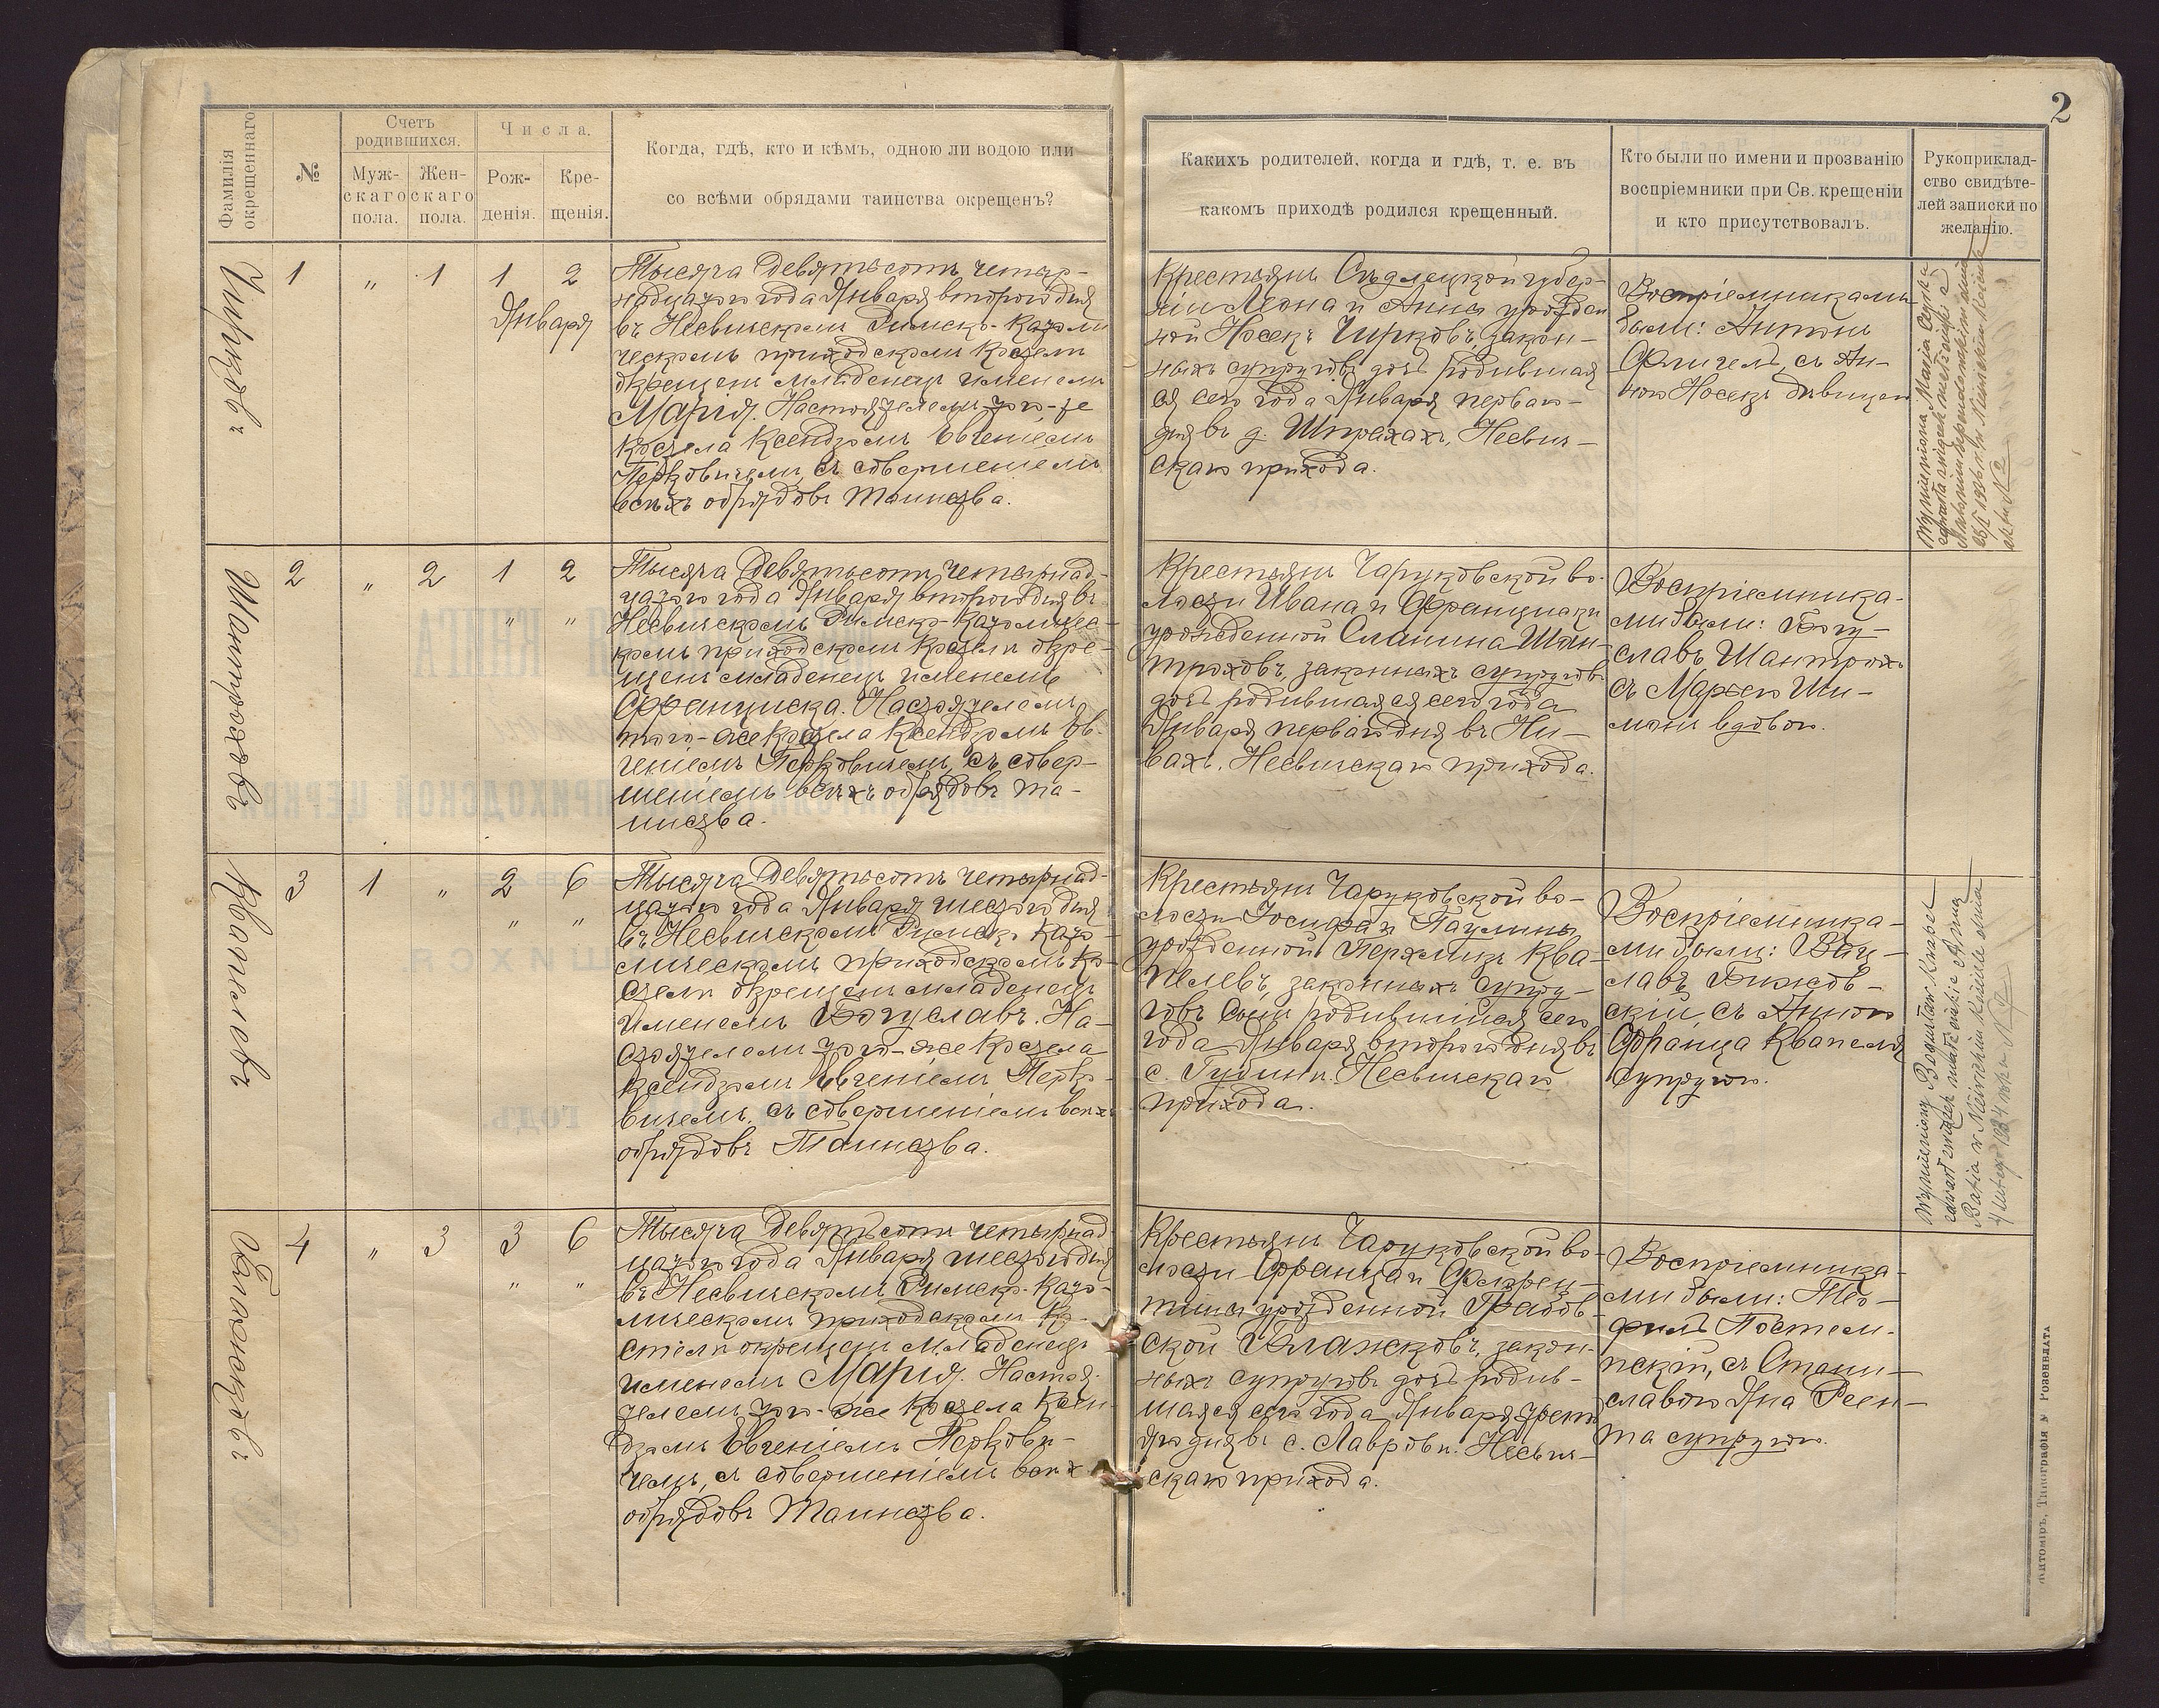 2
Фамилія
окрещеннаго
№
Счетъ
родившихся.
Муж-
скаго
пола.
Жен-
скаго
пола.
Числа.
Рож-
денія.
Кре-
щенія.
Когда, гдѣ, кто и кѣмъ, одною ли водою или
со всѣми обрядами таинства окрещенъ?
Какихъ родителей, когда и гдѣ, т. е. въ
какомъ приходѣ родился крещенный.
Кто были по имени и прозванію
воспріемники при Св. крещеніи
и кто присутствовалъ.
Рукоприклад-
ство свидѣте-
лей записки по
желанію.
1 „ 1 1 2
Января
Тысяча девятьсотъ четыр-
надцатого года Января второго дня
въ Несвичскомъ Римско-Католи
ческомъ приходскомъ костелѣ
окрещенъ младенецъ именемъ
Марія. Настоятелемъ того-же
костела Ксендзомъ Евгеніемъ
Перковичемъ, съ совершеніемъ
всѣхъ обрядовъ Таинства.
Крестьянъ Сѣдлецкой губер-
ніи Леона и Анны урожден
ной Носекъ Чирковъ, закон-
ныхъ супруговъ дочь родившая
ся сего года Января перваго
дня въ д. Штрахахъ, Несвич-
скаго прихода.
Воспріемниками
были: Антонъ
съ Ан-
ною Носекъ дѣвицею
Wymieniona Marja Cyrka
aktu № 2
Шантроховъ
2 „ 2 1 2
„ „
Тысяча девятьсотъ четырнад-
цатого года Января второго дня въ
Несвичскомъ Римско-Католичес-
комъ приходскомъ костелѣ окре-
щенъ младенецъ именемъ
Франциска. Настоятелемъ
того-же костела Ксендзомъ Ев-
геніемъ Перковичемъ, съ совер-
шеніемъ всѣхъ обрядовъ Та-
инства.
Крестьянъ Чаруковской во-
лости Ивана и Франциски
урожденной Сланина Шан-
троховъ, законныхъ супруговъ
дочь родившаяся сего года
Января перваго дня въ Ни-
вахъ, Несвичскаго прихода.
Воспріемника-
ми были: Богу-
славъ Шантрохъ
съ Маріею
вдовою.
Квапелевъ
3 1 „ 2 6
„ „
Тысяча девятьсотъ четырнад-
цатого года Января шестого дня
въ Несвичскомъ Римско-Като-
лическомъ приходскомъ ко-
стелѣ окрещенъ младенецъ
именемъ Богуславъ. На-
стоятелемъ того-же костела
Ксендзомъ Евгеніемъ Перко-
вичемъ, съ совершеніемъ всѣхъ
обрядовъ Таинства.
Крестьянъ Чаруковской во-
лости Іосифа и Паулины
урожденной Ква-
пелевъ, законныхъ супру-
говъ сынъ родившійся сего
года Января второго дня въ
с. Несвичскаго
прихода.
Воспріемника-
ми были: Вац-
лавъ
съ Анною
Франца Квапеля
супругою.
Wymieniony Bogusław Kwapel
zawarł związek małżeński z Anną
w Nieświckim Kościele dnia
4 lutego 1934 roku № 7
Блажковъ
4 „ 3 3 6
„ „
Тысяча девятьсотъ четырнад
цатого года Января шестого дня
въ Несвичскомъ Римско-Като-
лическомъ приходскомъ ко-
стелѣ окрещенъ младенецъ
именемъ Марія. Настоя-
телемъ того-же костела Ксен
дзомъ Евгеніемъ Перкови-
чемъ, съ совершеніемъ всѣхъ
обрядовъ Таинства.
Крестьянъ Чаруковской во-
лости Франца и Флорен-
тины урожденной Грабов-
ской Блажковъ, закон-
ныхъ супруговъ дочь родив-
шаяся сего года Января треть
яго дня въ с. Лавровѣ. Несвич-
скаго прихода.
Воспріемника-
ми были: Тео-
филъ
съ Стани-
славою Яна
супругою.